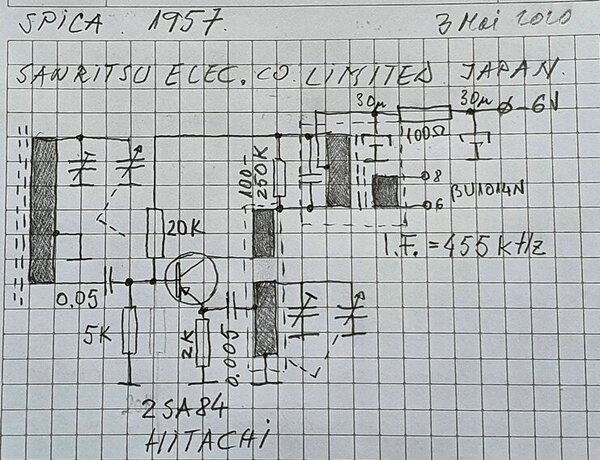 SPICA 1957. 3 Mai 2020
SANRITSU ELEC. CO. LIMITED JAPAN.
30µ 30µ -6V
100Ω
100-
250K
8
BU1014N
6
20K
I.F. = 455 kHz
0.05
5K
2K
0.005
2SA84
HITACHI